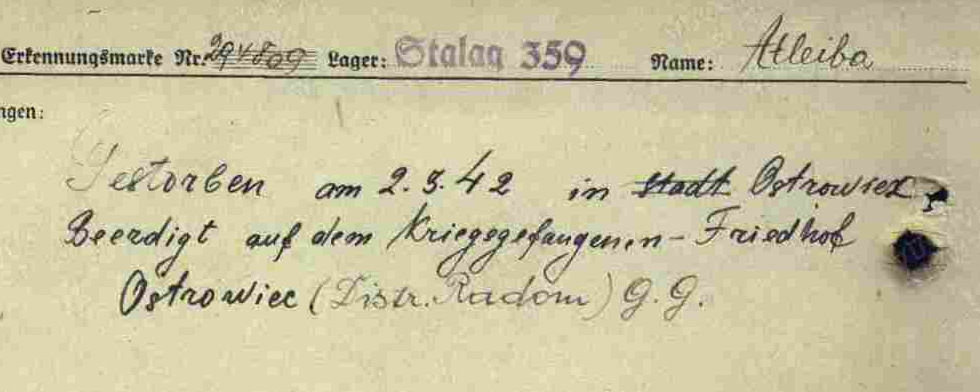 Erkennungsmarke Nr. Lager: Stalag 359 Name: Atleiba
ngen:
Gestorben am 2.3.42 in stadt Ostrowiez
Beerdigt auf dem Kriegsgefangenen-Friedhof
Ostrowiec (Distr. Radom) G.G.